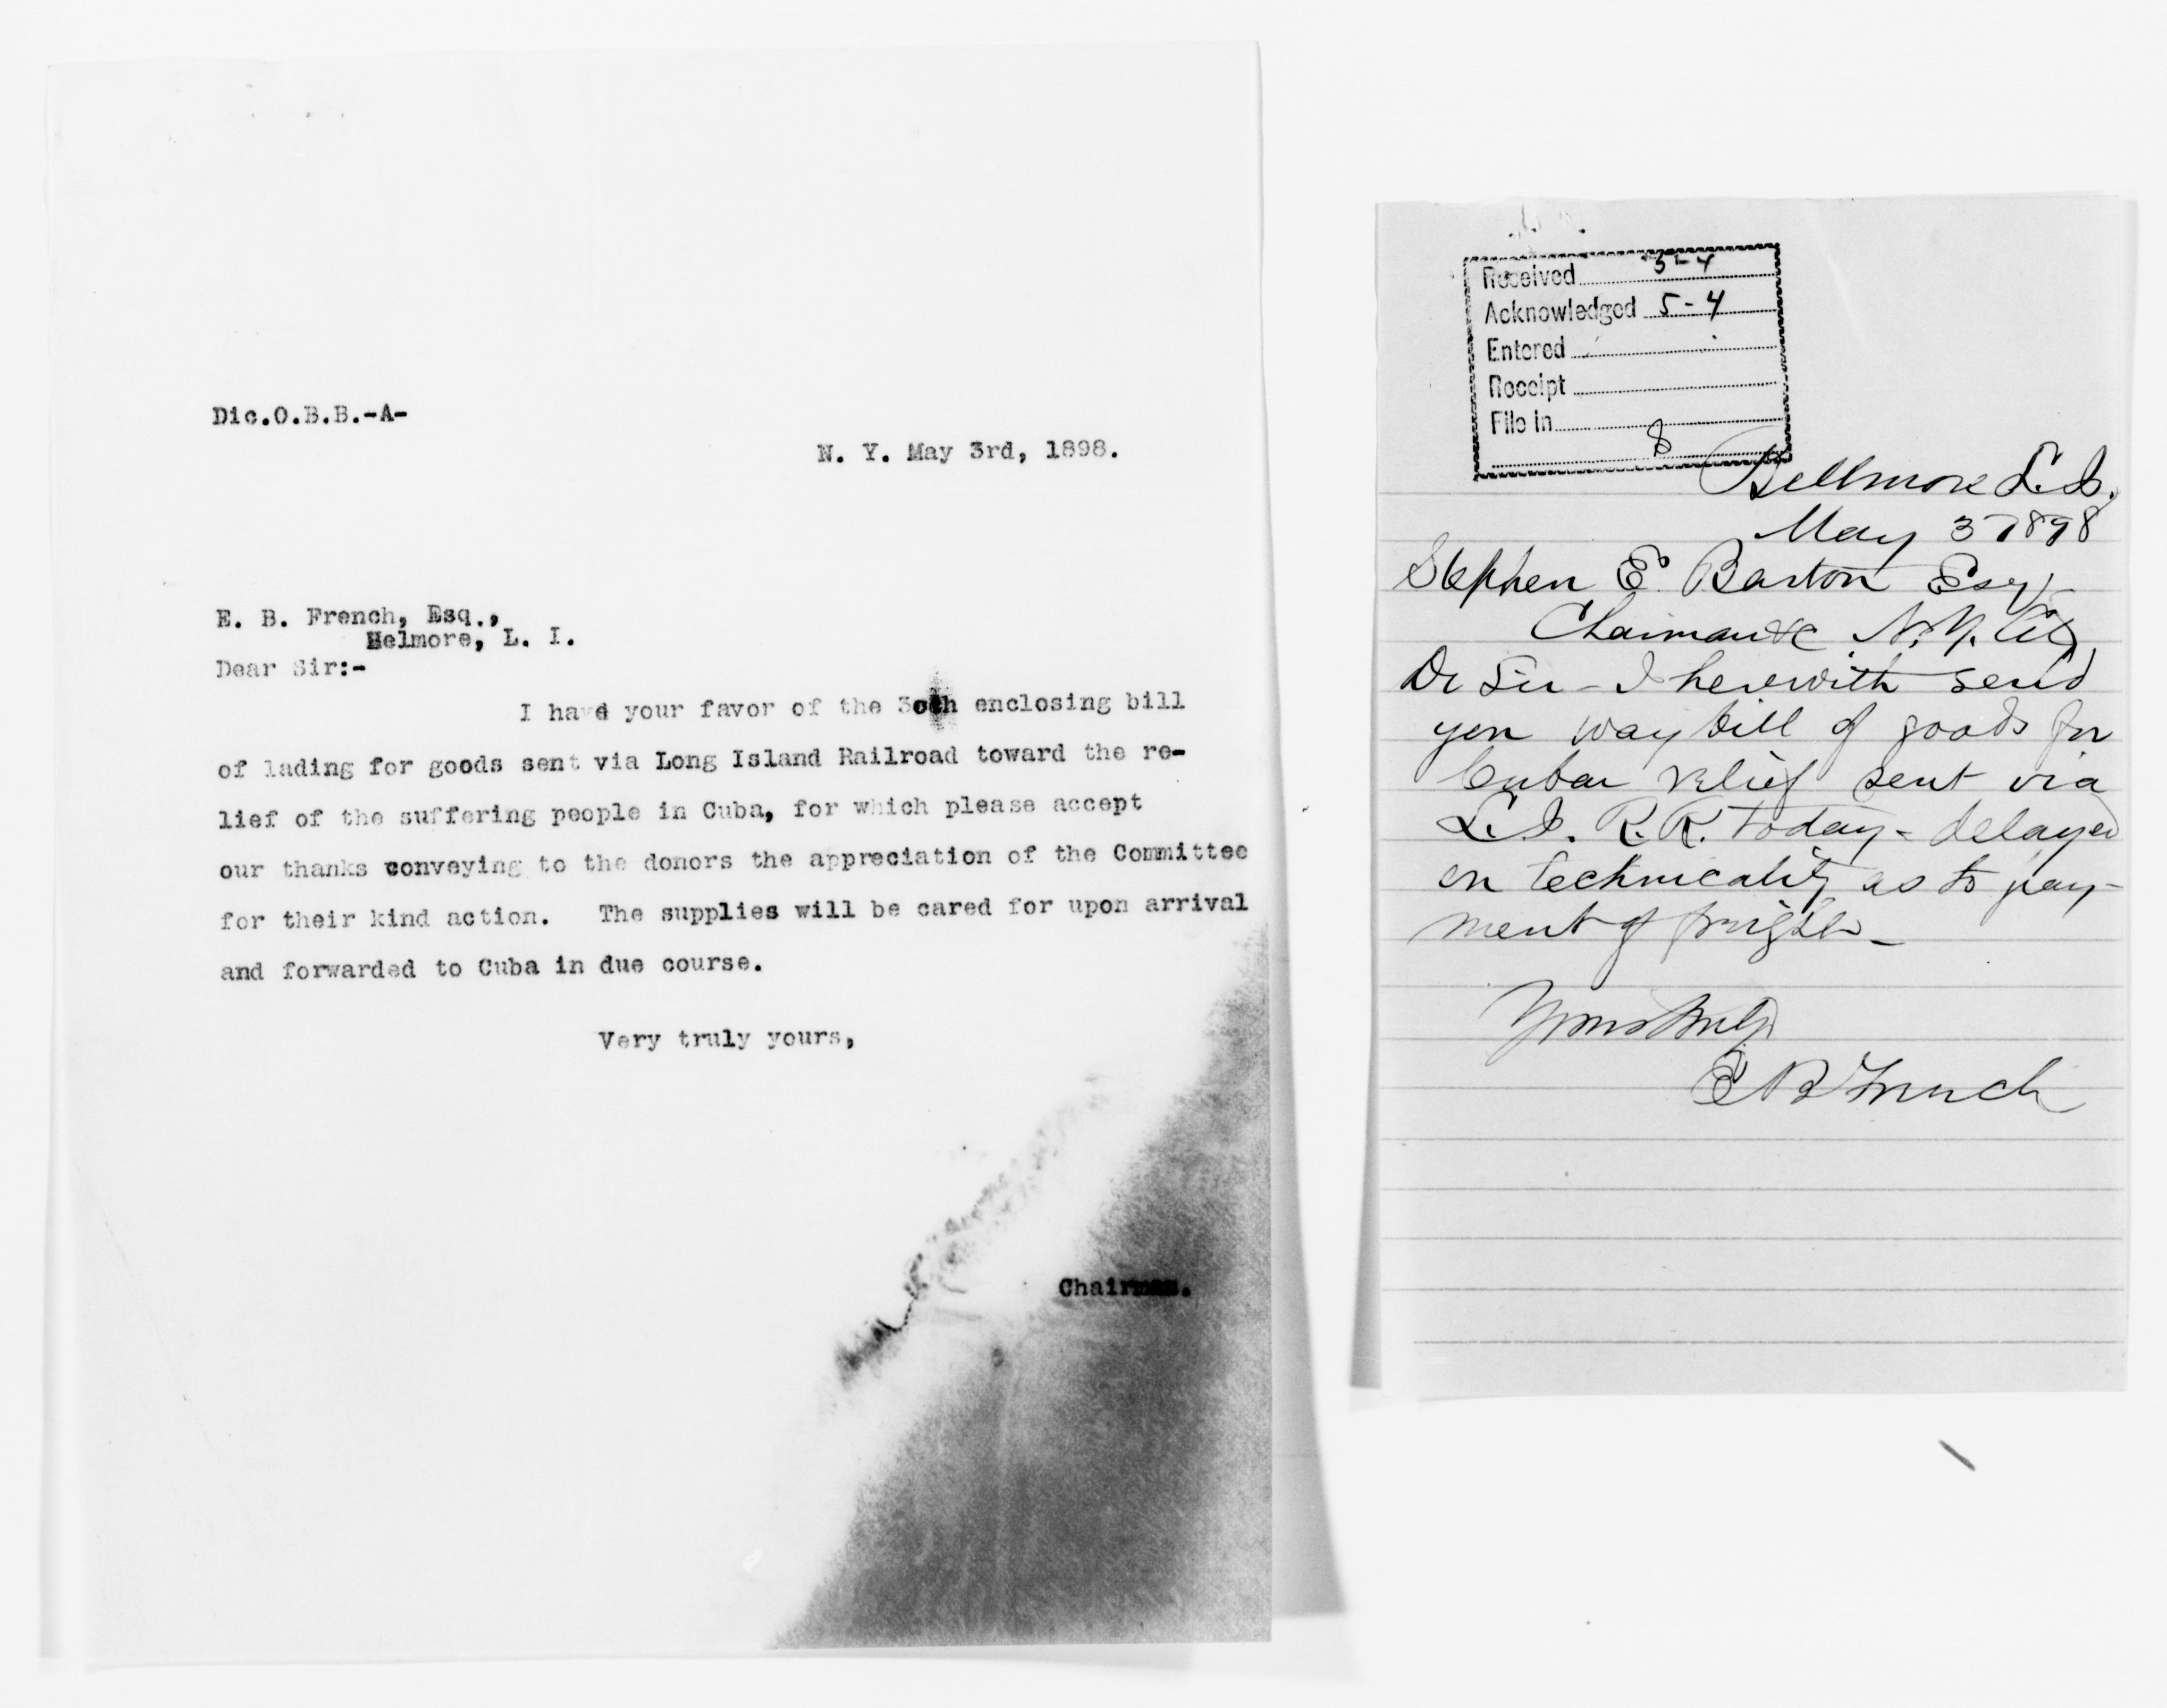 Dic.O.B.B.-A-
N. Y. May 3rd, 1898.
E. B. French, Esq.,
Belmore, L. I.
Dear Sir:-
I have your favor of the 30th enclosing bill
of lading for goods sent via Long Island Railroad toward the re-
lief of the suffering people in Cuba, for which please accept
our thanks conveying to the donors the appreciation of the Committee
for their kind action. The supplies will be cared for upon arrival
and forwarded to Cuba in due course.
Very truly yours,
Chairman.
Received 5-4
Acknowledged 5-4
Entered
Receipt
File in
8
Bellmore L.I.
May 3 1898
Stephen E. Barton Esq
Chairman &c N.Y. City
Dr Sir - I herewith send
you way bill of goods for
Cuban relief sent via
L.I. R.R. today - delayed
on technicality as to pay-
ment of freight -
Yours truly
E B French